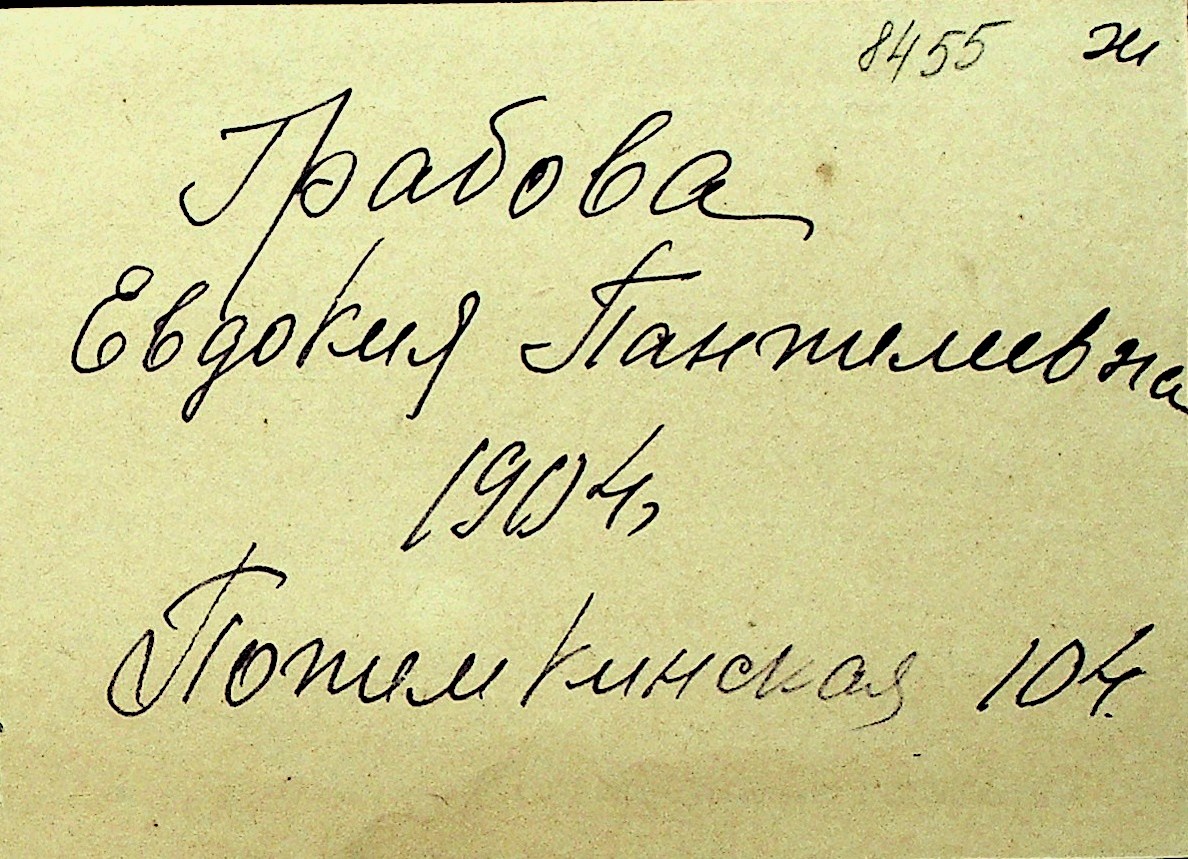 8455 ж
Грабова
Евдокия Пантелеевна
1904,
Потемкинская 104.